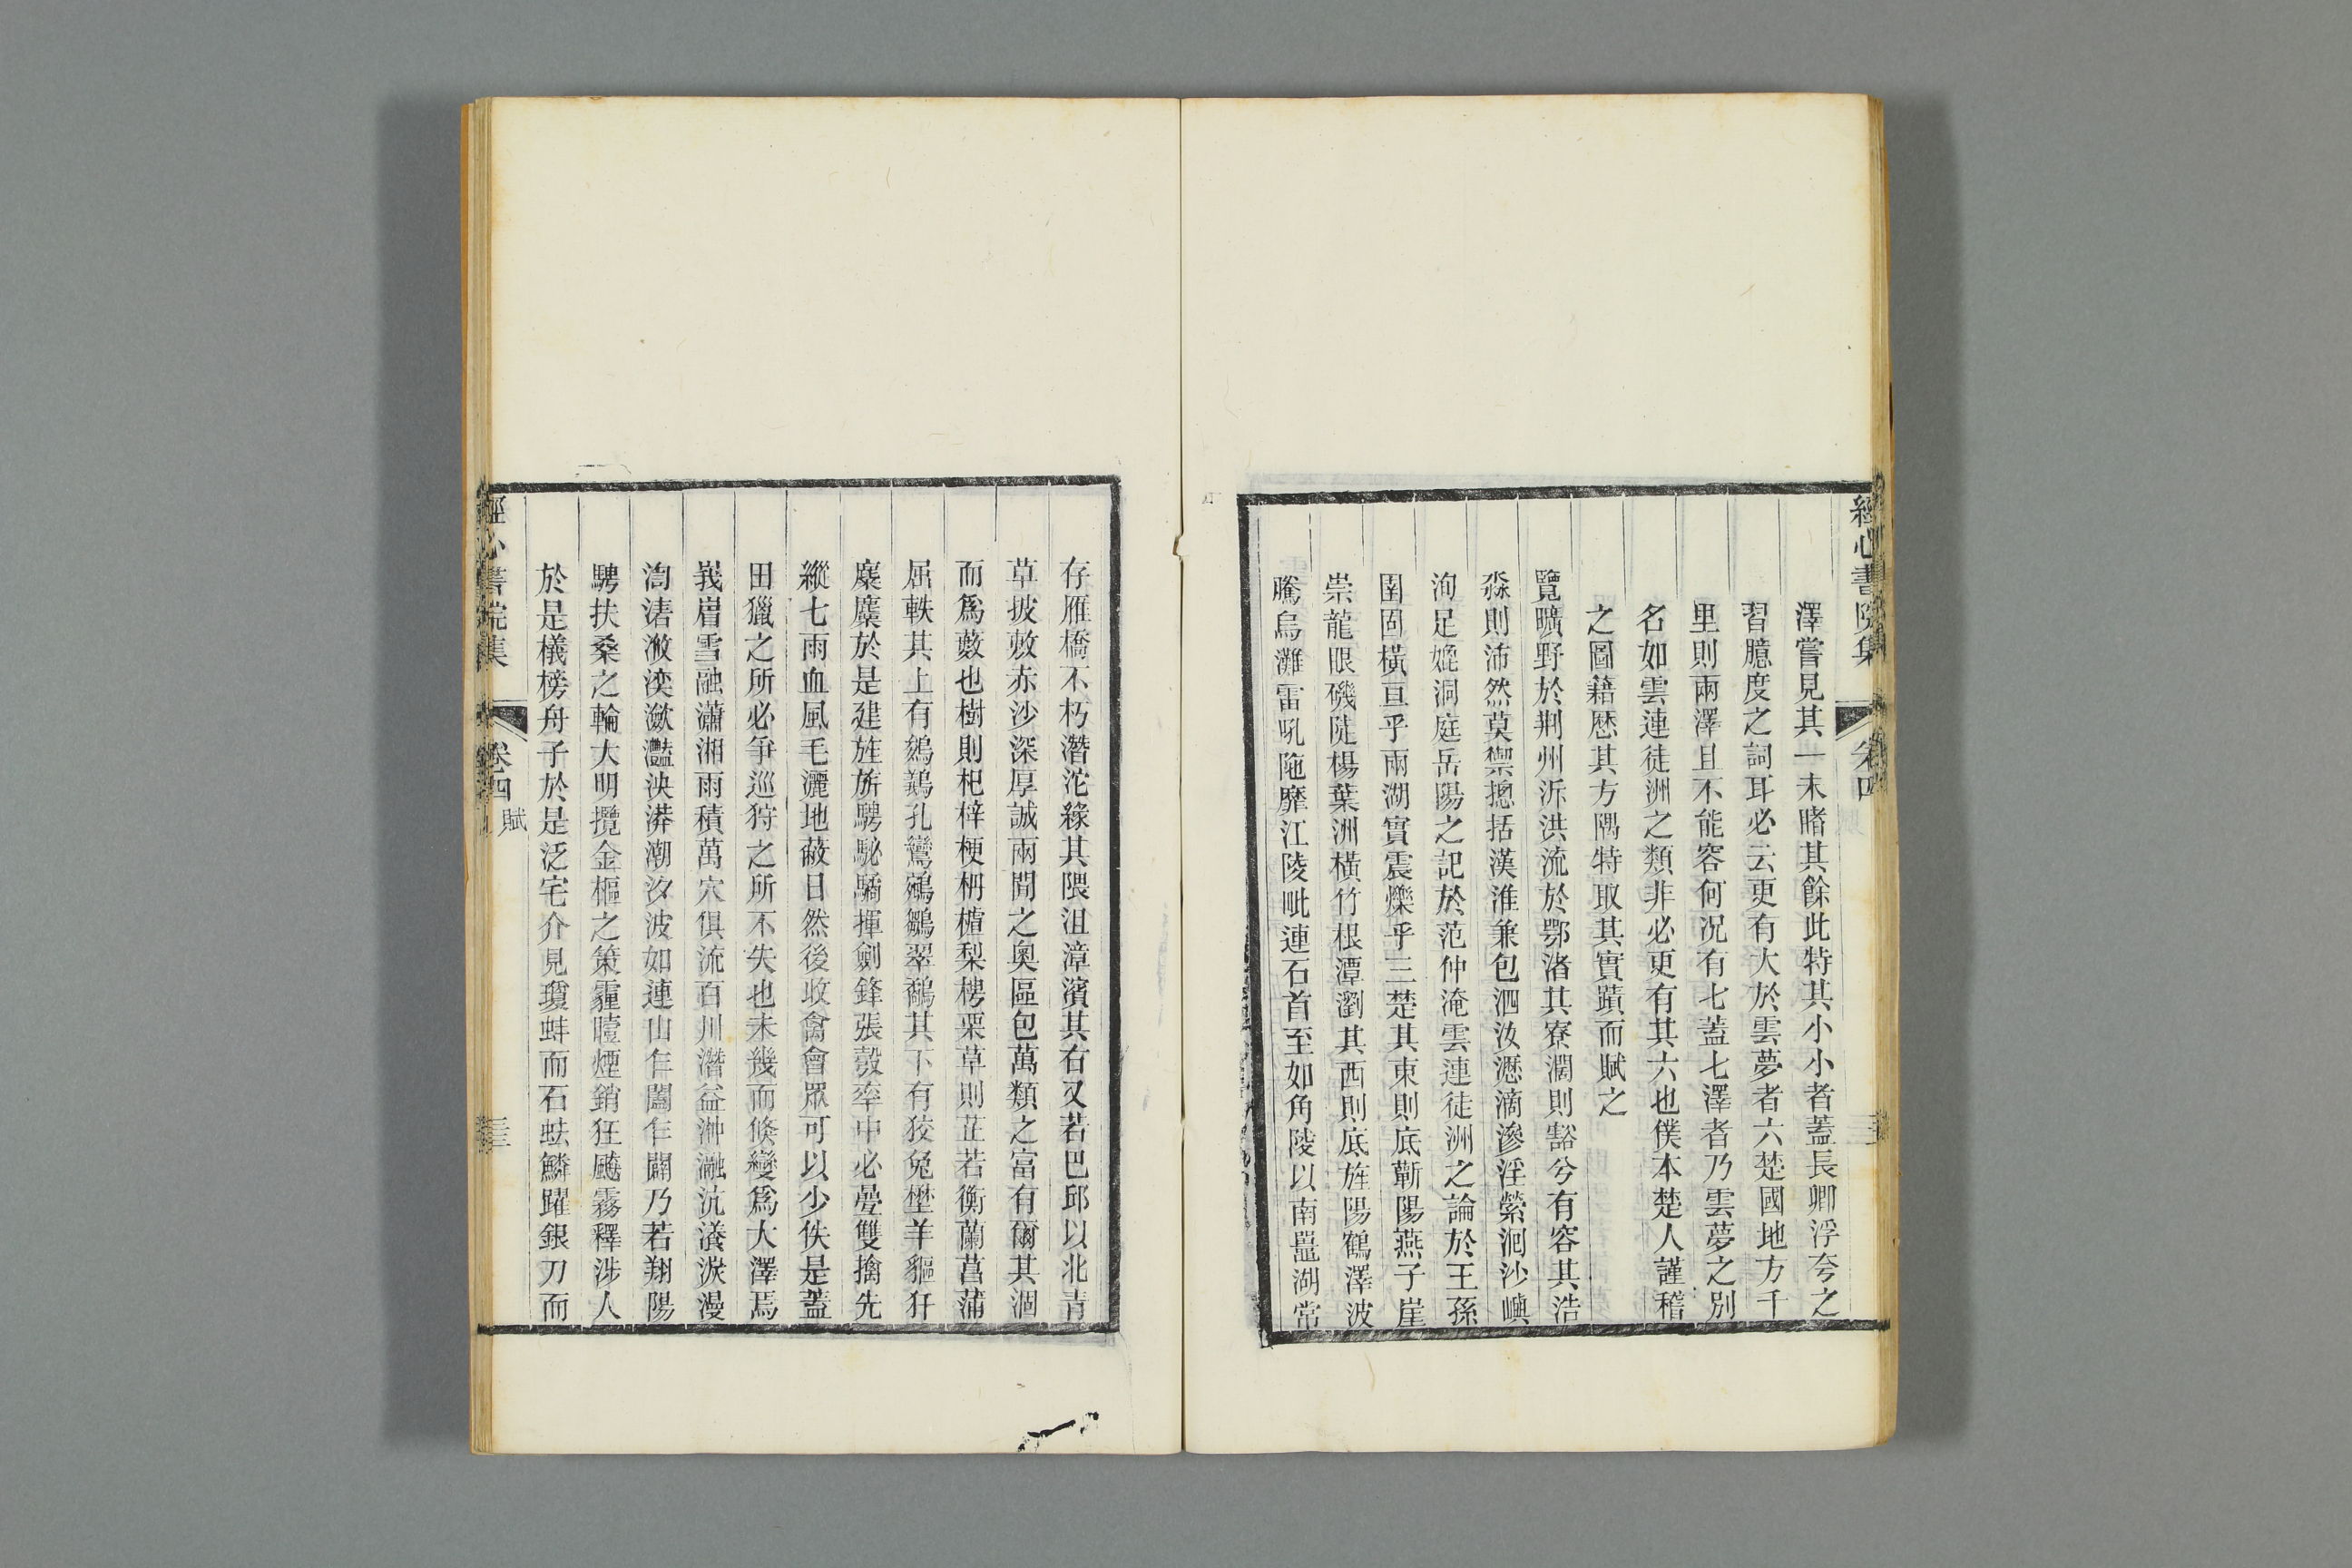 經心書院集
卷四
澤嘗見其一未睹其餘此特其小小者蓋長卿浮夸之
習臆度之詞耳必云更有大於雲夢者六楚國地方千
里則兩澤且不能容何况有七蓋七澤者乃雲夢之別
名如雲連徒洲之類非必更有其六也僕本楚人謹稽
之圖藉歷其方隅特取其實蹟而賦之
覽曠野於荆州泝洪流於鄂渚其寮濶則豁兮有容其浩
淼則沛然莫禦摠括漢淮兼包泗汝瀝滴滲淫縈洄沙嶼
洵足娩洞庭岳陽之記於范仲淹雲連徒洲之論於王孫
圉固橫亘乎兩湖實震爍乎三楚其東則底蘄陽燕子崖
崇龍眼磯陡楊葉洲橫竹根潭瀏其西則底旌陽鶴澤波
騰烏灘雷吼陁靡江陵毗連石首至如角陵以南䁝湖常
存雁橋不朽潛沱緣其隈沮漳濱其右又若巴邱以北青
草披敷赤沙深厚誠兩間之奧區包萬類之富有爾其涸
而爲藪也樹則杞梓梗枏楂梨梬栗草則芷若衡蘭菖蒲
屈軼其上有鵷鶵孔鸞鵜鶵翠鷸其下有狡兔㹃羊貙犴
麋麈於是建旌旂騁駜驕揮劍鋒張彀率中必疊雙擒先
縱七雨血風毛灑地蔽日然後收禽會眾可以少佚是蓋
田獵之所必爭巡狩之所不失也未幾而倐變爲大澤焉
峩嵋雪融瀟湘雨積萬穴俱流百川潛益浺瀜沆瀁淚漫
渹湱滧湙瀲灩泱漭潮汐波如連山乍闔乍闢乃若翔陽
騁扶桑之輪大明攬金樞之策霾曀煙銷狂飈霧釋涉人
於是檥榜舟子於是泛宅介見瓊蚌而石蚨鱗躍銀刀而
經心書院集
卷四
賦
三